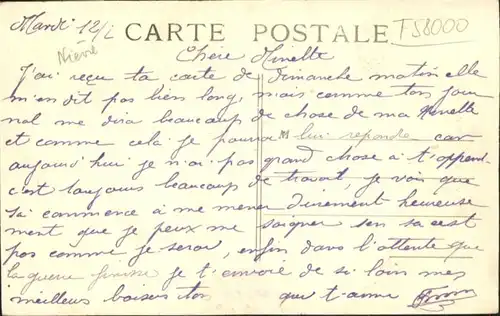 Mardi 12/2 CARTE POSTALE F58000
Nièvre
Chère Minette
J'ai reçu ta carte de dimanche matin elle
m'en dit pas bien long, mais comme ton jour
nal me dira beaucoup de chose de ma Minette
et comme cela je pourrai lui repondre car
aujourd'hui je n'ai pas grand chose à t'apprend
c'est toujours beaucoup de travail, je vois que
sa commence à me mener durement heureuse
ment que je peux me soigner sen sa c'est
pas comme je serai, enfin dans l'attente que
la guerre finisse je t'envoie de si loin mes
meilleurs baisers ton qui t'aime